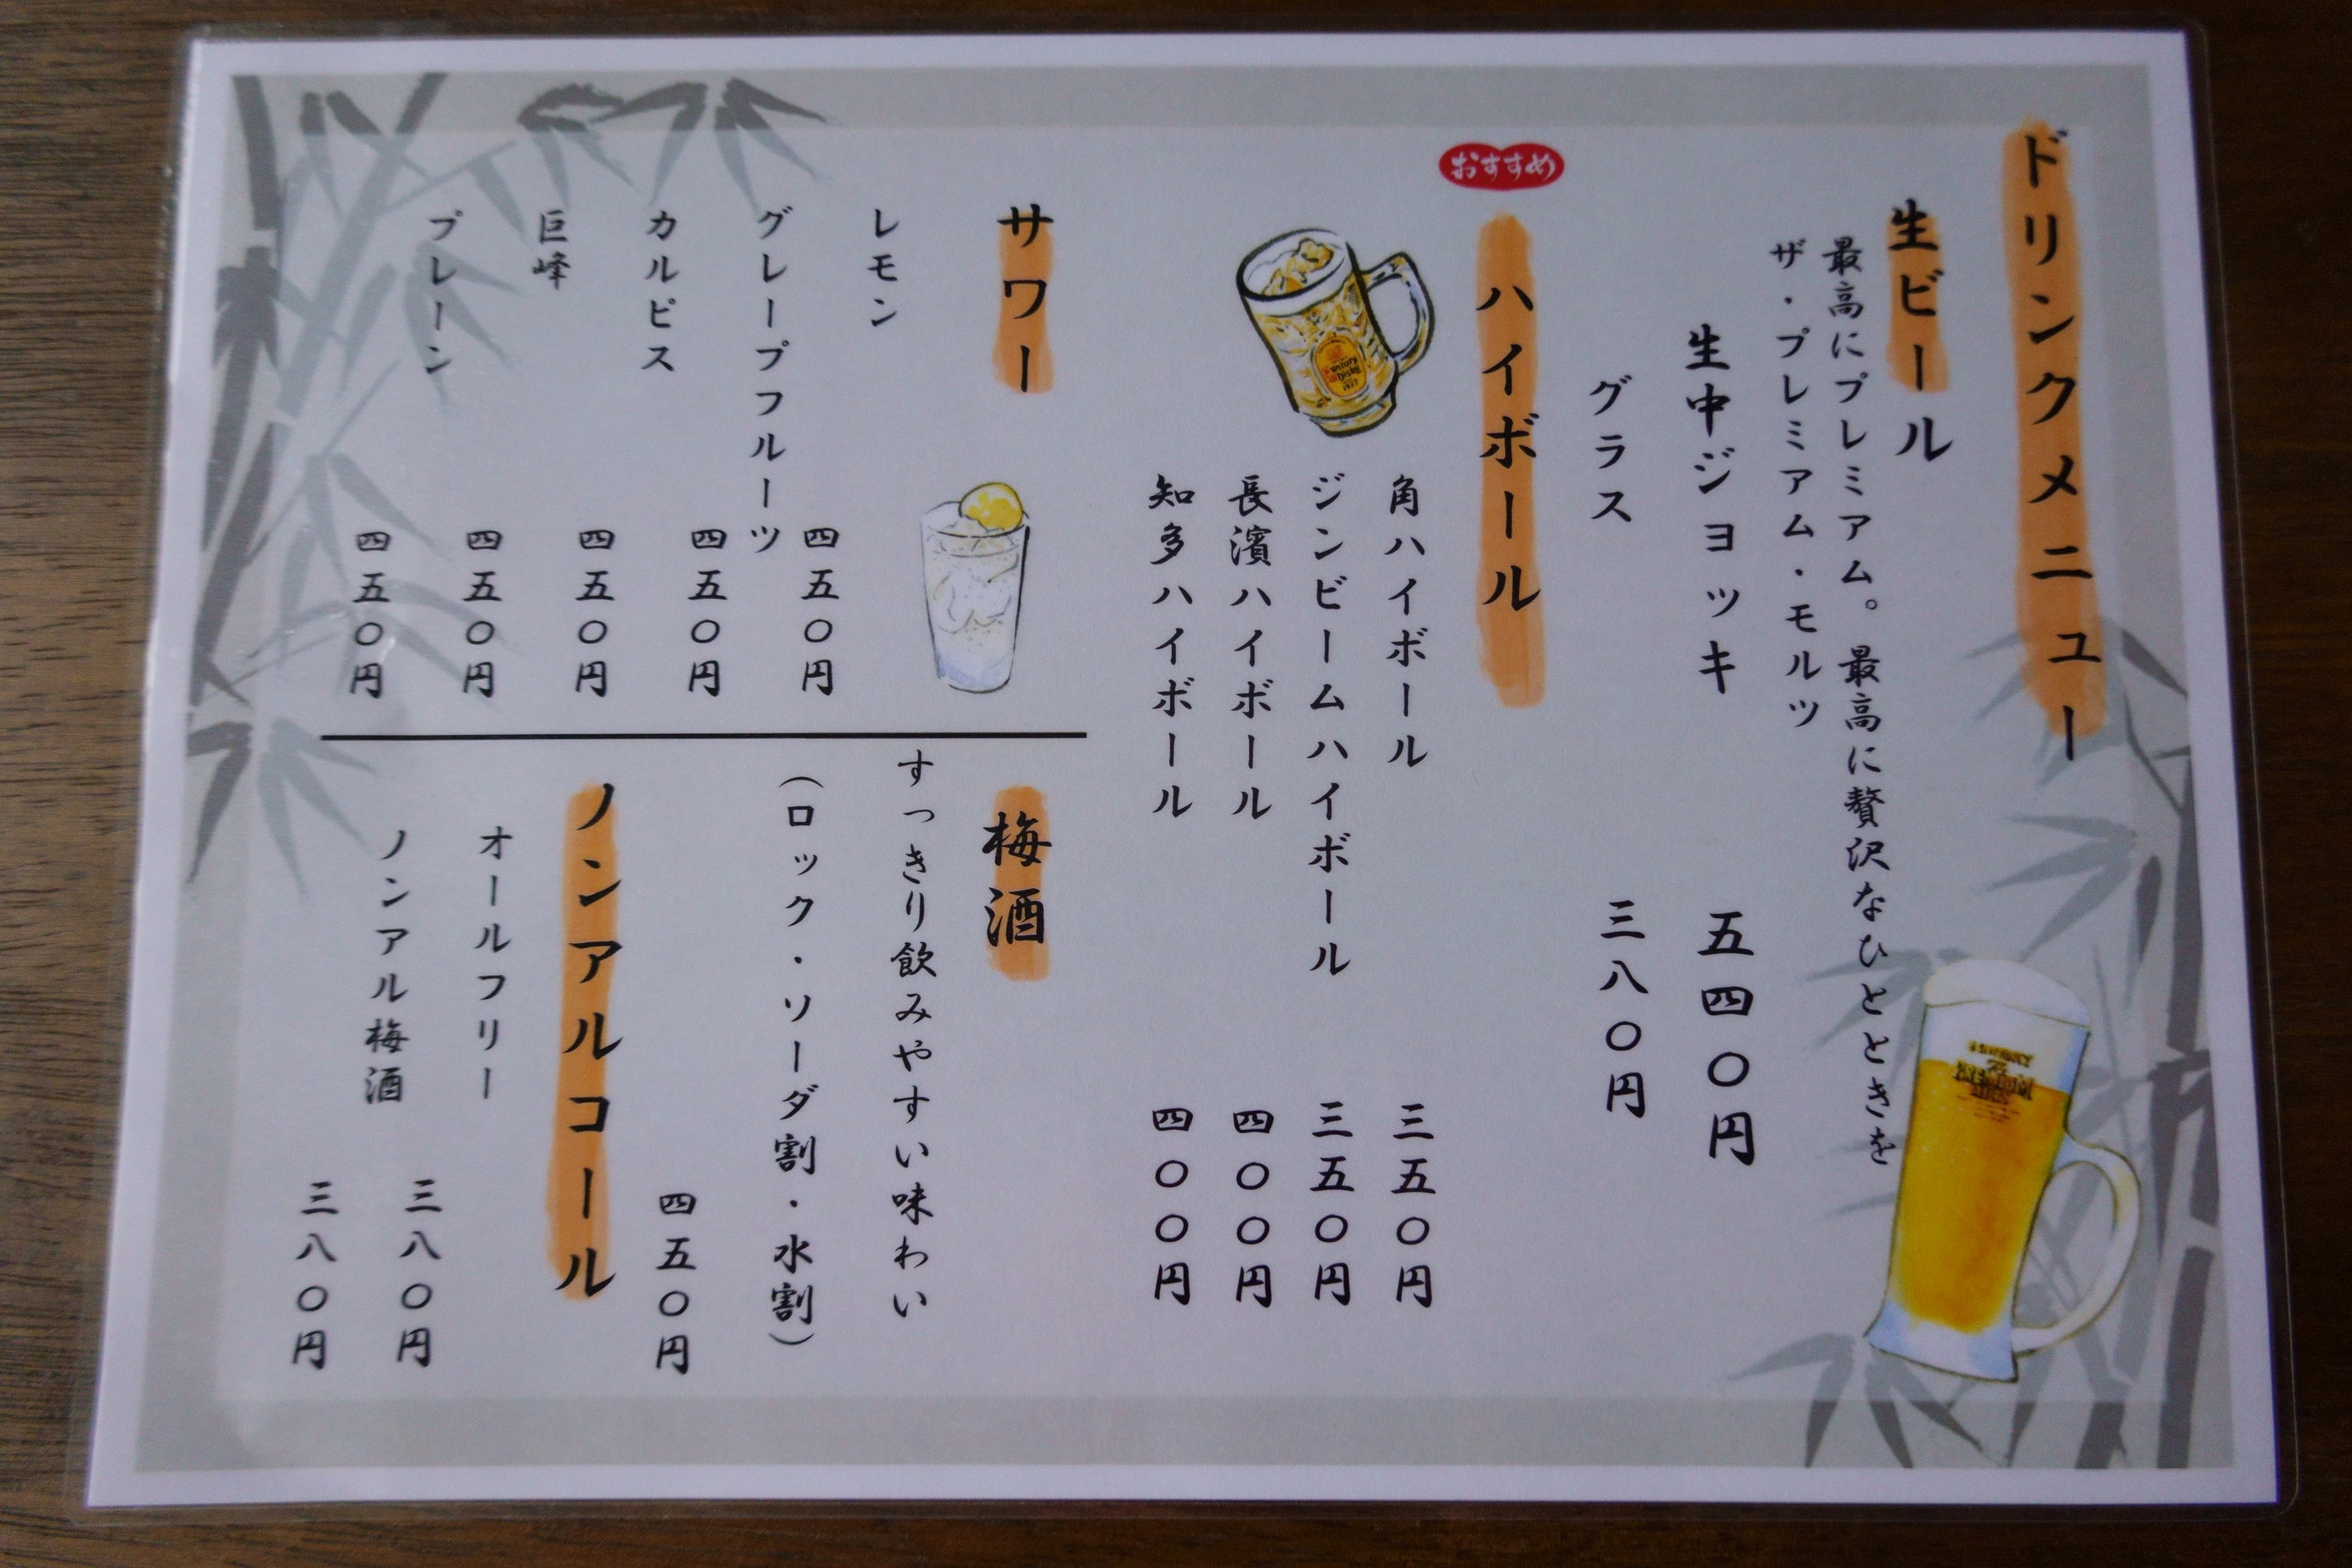 ドリンクメニュー
生ビール
最高にプレミアム。最高に贅沢なひとときを
ザ・プレミアム・モルツ
生中ジョッキ 五四〇円
グラス 三八〇円
おすすめ
ハイボール
角ハイボール 三五〇円
ジンビームハイボール 三五〇円
長濱ハイボール 四〇〇円
知多ハイボール 四〇〇円
サワー
レモン 四五〇円
グレープフルーツ 四五〇円
カルピス 四五〇円
巨峰 四五〇円
プレーン 四五〇円
梅酒
すっきり飲みやすい味わい
（ロック・ソーダ割・水割）
四五〇円
ノンアルコール
オールフリー 三八〇円
ノンアル梅酒 三八〇円